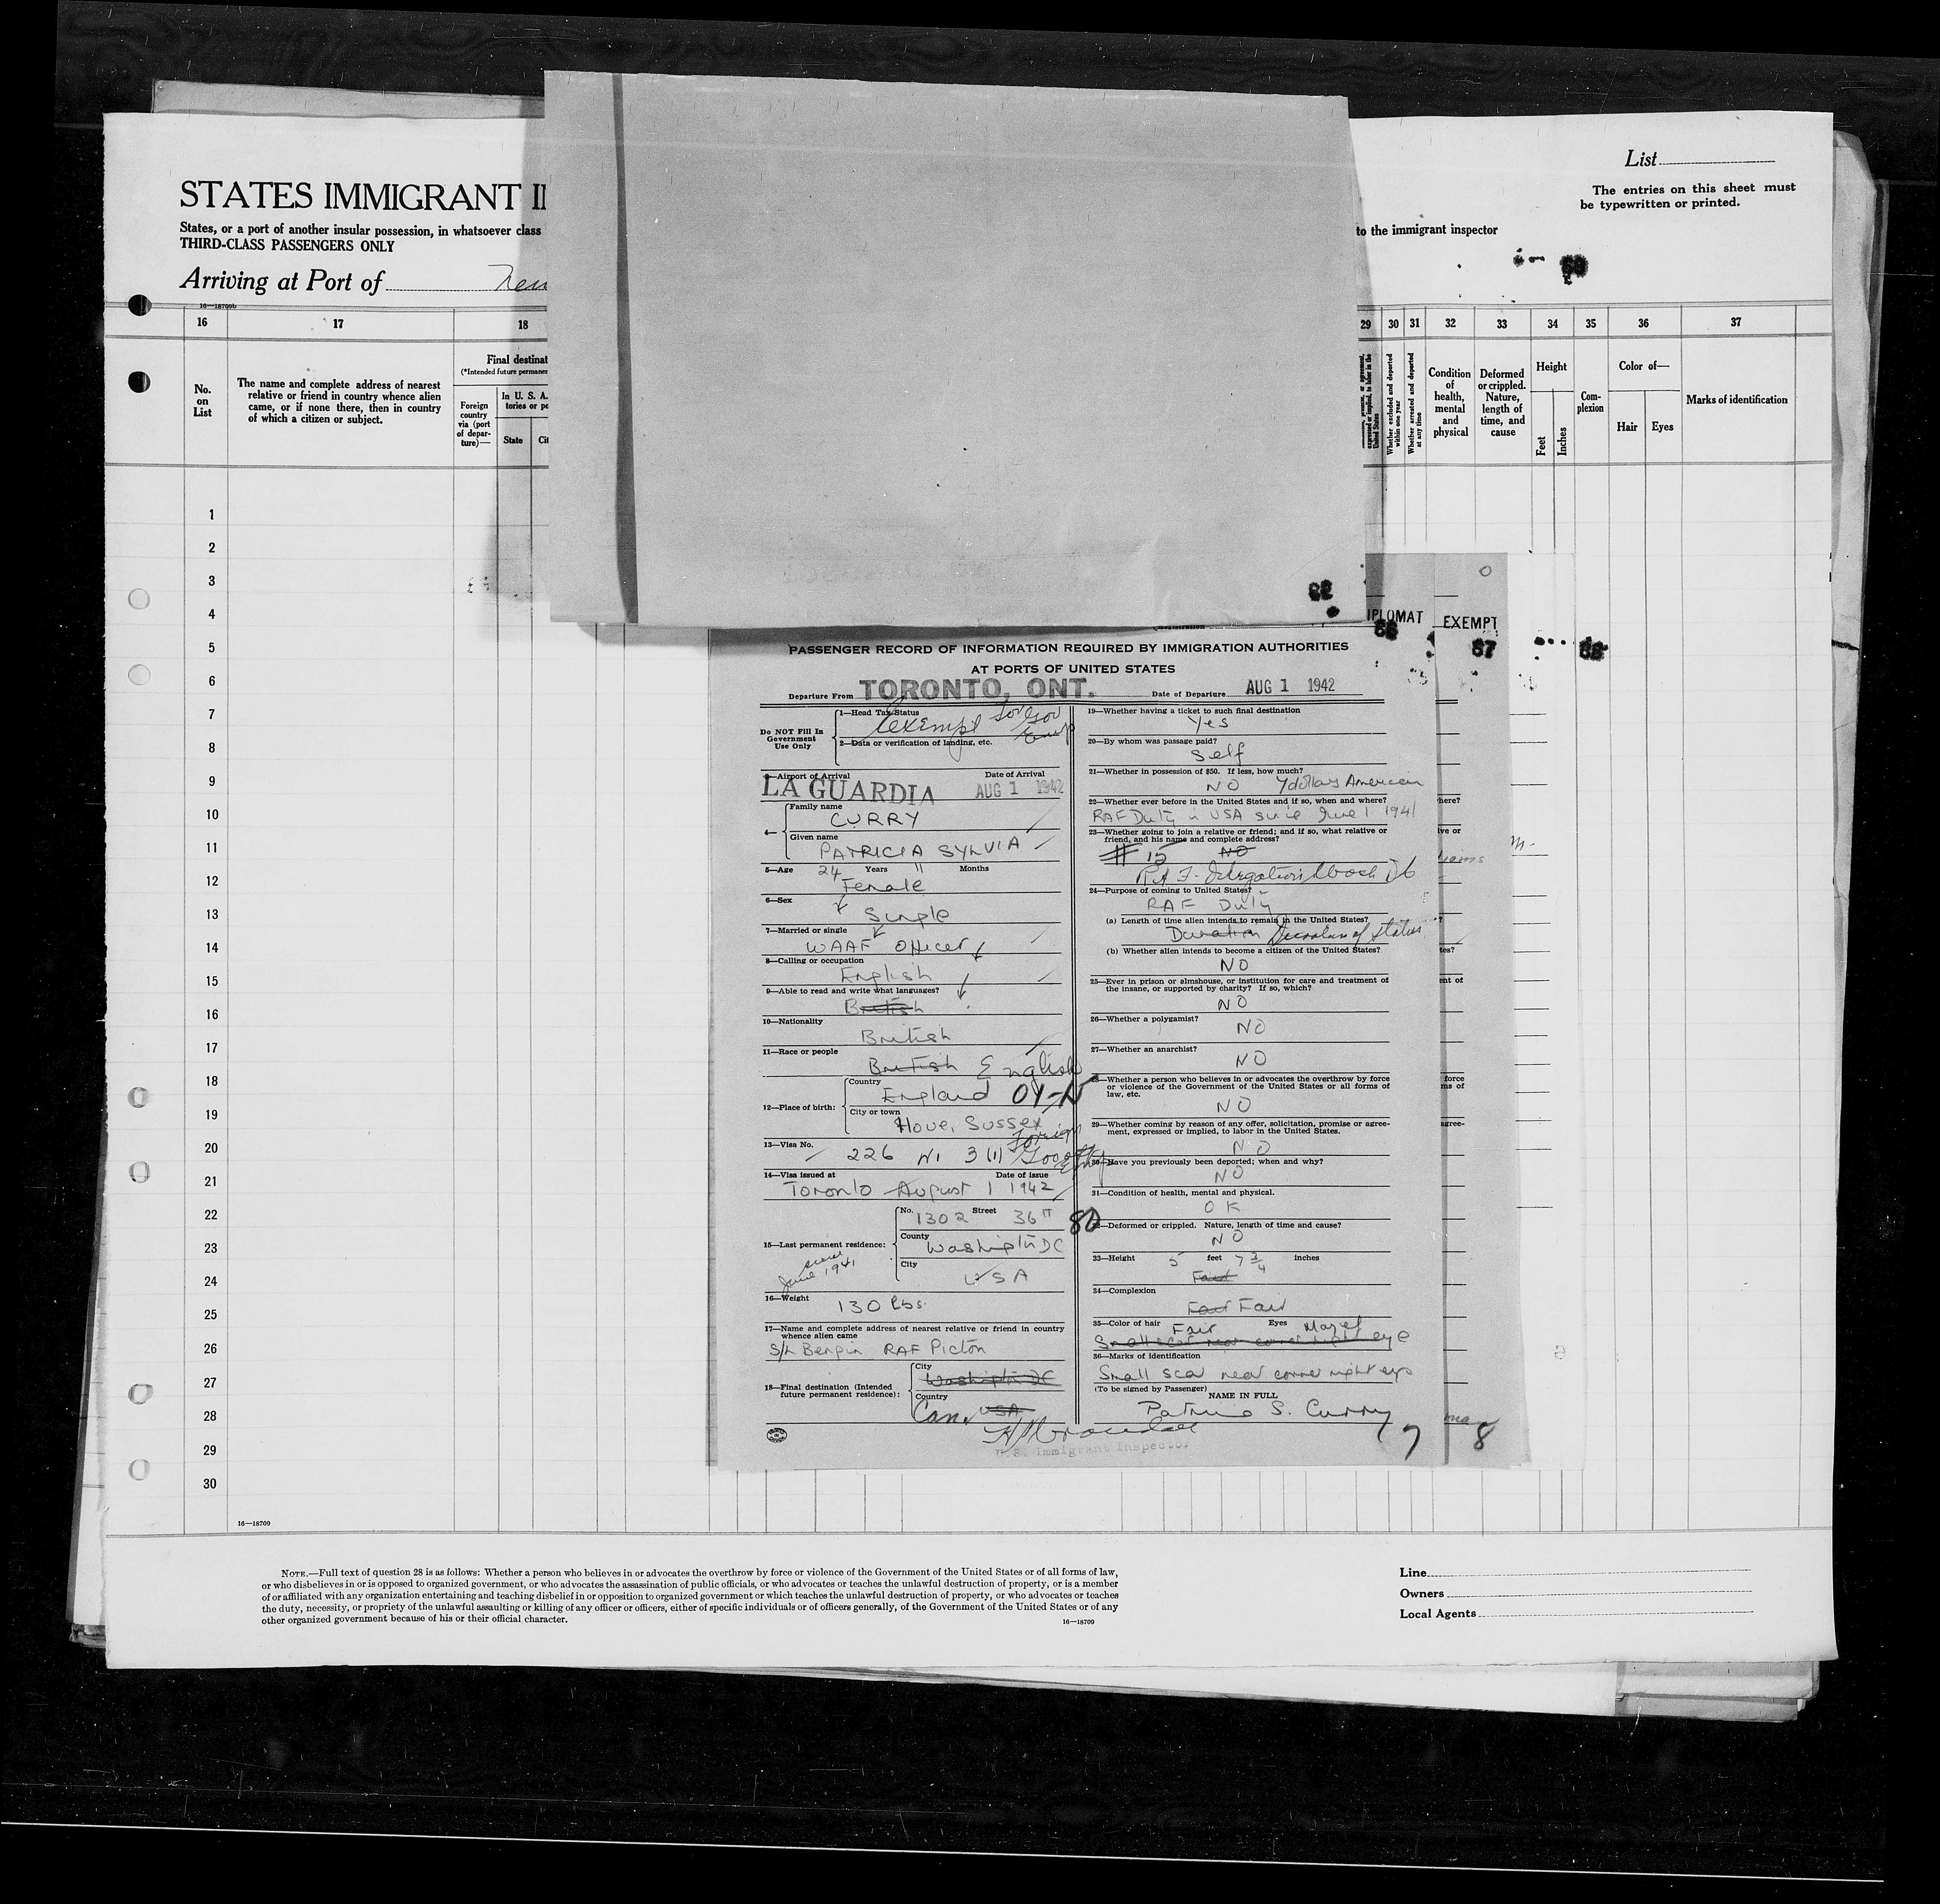 List
The entries on this sheet must
be typewritten or printed.
STATES IMMIGRANT
States, or a port of another insular possession, in whatsoever class
to the immigrant inspector
THIRD-CLASS PASSENGERS ONLY
Arriving at Port of
16—18709b
16 17 18 29 30 31 32 33 34 35 36 37
No. on List
The name and complete address of nearest
relative or friend in country whence alien
came, or if none there, then in country
of which a citizen or subject.
Final destinat
(*Intended future permane
Foreign
country
via (port
of depar-
ture)—
In U. S. A.
tories or po
State
Cit
expressed or implied, to labor in the
United States
Whether excluded and deported
within one year
Whether arrested and deported
at any time
Condition
of
health,
mental
and
physical
Deformed
or crippled.
Nature,
length of
time, and
cause
Height
Feet
Inches
Com-
plexion
Color of—
Hair
Eyes
Marks of identification
1
2
3
4
5
6
7
8
9
10
11
12
13
14
15
16
17
18
19
20
21
22
23
24
25
26
27
28
29
30
16—18709
82
IPLOMAT
EXEMPT
87
PASSENGER RECORD OF INFORMATION REQUIRED BY IMMIGRATION AUTHORITIES
AT PORTS OF UNITED STATES
Departure From TORONTO, ONT.
Date of Departure AUG 1 1942
Do NOT Fill In
Government
Use Only
1—Head Tax Status
Exempt
2—Data or verification of landing, etc.
3—Airport of Arrival
Date of Arrival
LA GUARDIA AUG 1 1942
4—
Family name
CURRY
Given name
PATRICIA SYLVIA
5—Age 24 Years 11 Months
Female
6—Sex
Single
7—Married or single
WAAF Officer
8—Calling or occupation
English
9—Able to read and write what languages?
British
10—Nationality
British
11—Race or people
British English
12—Place of birth:
Country
England
City or town
Hove, Sussex
13—Visa No.
226 3(1)
Foreign
14—Visa issued at
Date of issue
Toronto August 1 1942
15—Last permanent residence:
since
June 1941
No. 1302 Street 36
County
Washington DC
City
USA
16—Weight
130 lbs.
17—Name and complete address of nearest relative or friend in country
whence alien came
RAF Picton
18—Final destination (Intended
future permanent residence):
City
Washington DC
Country
Can. USA
U.S. Immigrant Inspector
19—Whether having a ticket to such final destination
Yes
20—By whom was passage paid?
Self
21—Whether in possession of $50. If less, how much?
NO 7 dollars American
22—Whether ever before in the United States and if so, when and where?
RAF Duty in USA since June 1 1941
23—Whether going to join a relative or friend; and if so, what relative or
friend, and his name and complete address?
# 15 NO
24—Purpose of coming to United States?
RAF Duty
(a) Length of time alien intends to remain in the United States?
Duration Duration of status
(b) Whether alien intends to become a citizen of the United States?
NO
25—Ever in prison or almshouse, or institution for care and treatment of
the insane, or supported by charity? If so, which?
NO
26—Whether a polygamist?
NO
27—Whether an anarchist?
NO
28—Whether a person who believes in or advocates the overthrow by force
or violence of the Government of the United States or all forms of
law, etc.
NO
29—Whether coming by reason of any offer, solicitation, promise or agree-
ment, expressed or implied, to labor in the United States.
NO
30—Have you previously been deported; when and why?
NO
31—Condition of health, mental and physical.
OK
32—Deformed or crippled. Nature, length of time and cause?
NO
33—Height 5 feet 7 3/4 inches
34—Complexion
Fair Fair
35—Color of hair Fair Eyes Hazel
Small scar near corner right eye
36—Marks of identification
Small scar near corner right eye
(To be signed by Passenger)
NAME IN FULL
Patricia S. Curry
7
8
here?
ive or
tes?
ent of
force
ms of
agree-
NOTE.—Full text of question 28 is as follows: Whether a person who believes in or advocates the overthrow by force or violence of the Government of the United States or of all forms of law,
or who disbelieves in or is opposed to organized government, or who advocates the assassination of public officials, or who advocates or teaches the unlawful destruction of property, or is a member
of or affiliated with any organization entertaining and teaching disbelief in or opposition to organized government or which teaches the unlawful destruction of property, or who advocates or teaches
the duty, necessity, or propriety of the unlawful assaulting or killing of any officer or officers, either of specific individuals or of officers generally, of the Government of the United States or of any
other organized government because of his or their official character.
16—18709
Line
Owners
Local Agents